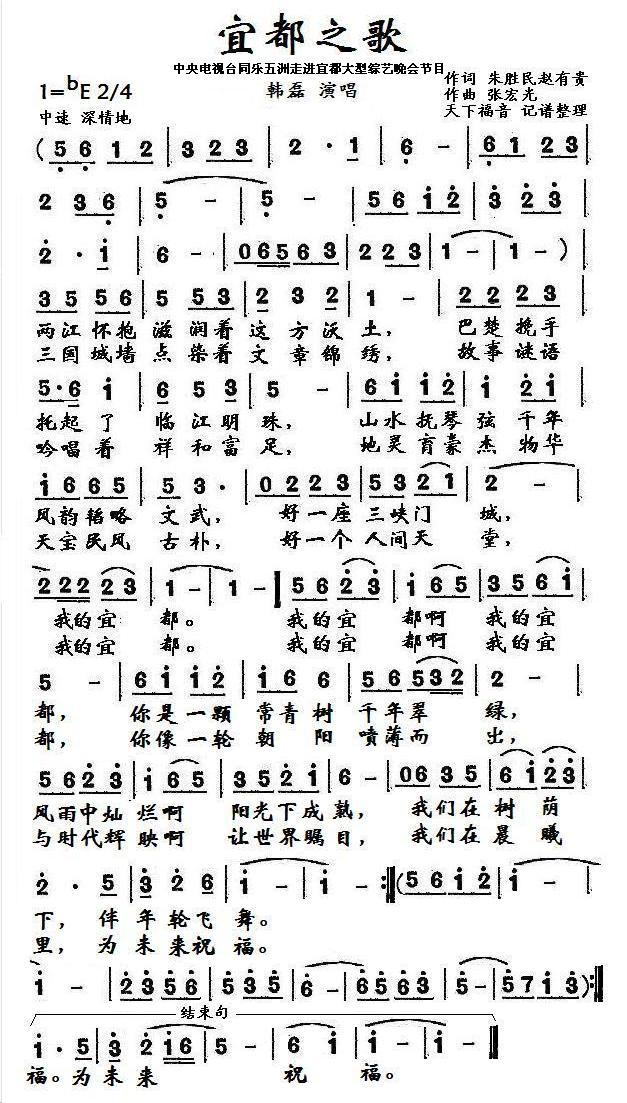 宜都之歌
中央电视台同乐五洲走进宜都大型综艺晚会节目
1=bE 2/4
韩磊 演唱
作词 朱胜民赵有贵
作曲 张宏光
中速 深情地
天下福音 记谱整理
( 5 6 1 2 | 3 2 3 | 2 · 1 | 6 - | 6 1 2 3 |
2 3 6 | 5 - | 5 - | 5 6 1 2 | 3 2 3 |
2 · 1 | 6 - | 0 6 5 6 3 | 2 2 3 | 1 - | 1 - )
3 5 5 6 | 5 5 3 | 2 3 2 | 1 - | 2 2 2 3 |
两江怀抱 滋润着 这方沃土, 巴楚挽手
三国城墙 点染着 文章锦绣, 故事谜语
5 · 6 1 | 6 5 3 | 5 - | 6 1 1 2 | 1 2 1 |
托起了 临江明珠, 山水抚琴弦千年
吟唱着 祥和富足, 地灵育豪杰物华
1 6 6 5 | 5 3 · | 0 2 2 3 | 5 3 2 1 | 2 - |
风韵韬略 文武, 好一座 三峡门 城,
天宝民风 古朴, 好一个 人间天 堂,
2 2 2 2 3 | 1 - | 1 - | 5 6 2 3 | 1 6 5 | 3 5 6 1 |
我的宜 都。 我的宜 都啊 我的宜
我的宜 都。 我的宜 都啊 我的宜
5 - | 6 1 1 2 | 1 6 6 | 5 6 5 3 2 | 2 - |
都, 你是一颗 常青树 千年翠 绿,
都, 你像一轮 朝 阳 喷薄而 出,
5 6 2 3 | 1 6 5 | 3 5 2 1 | 6 - | 0 6 3 5 | 6 1 2 3 |
风雨中灿 烂啊 阳光下成熟, 我们在树 荫
与时代辉 映啊 让世界瞩目, 我们在晨 曦
2 · 5 | 3 2 2 6 | 1 - | 1 - :| ( 5 6 1 2 | 1 -
下, 伴 年轮飞 舞。
里, 为 未来祝 福。
1 - | 2 3 5 6 | 5 3 2 3 5 | 6 - | 6 5 6 3 | 5 - | 5 7 1 3 ) :|
结束句
1 · 5 | 3 2 1 6 | 5 - | 6 1 | 1 - | 1 - |
福。为 未来 祝 福。